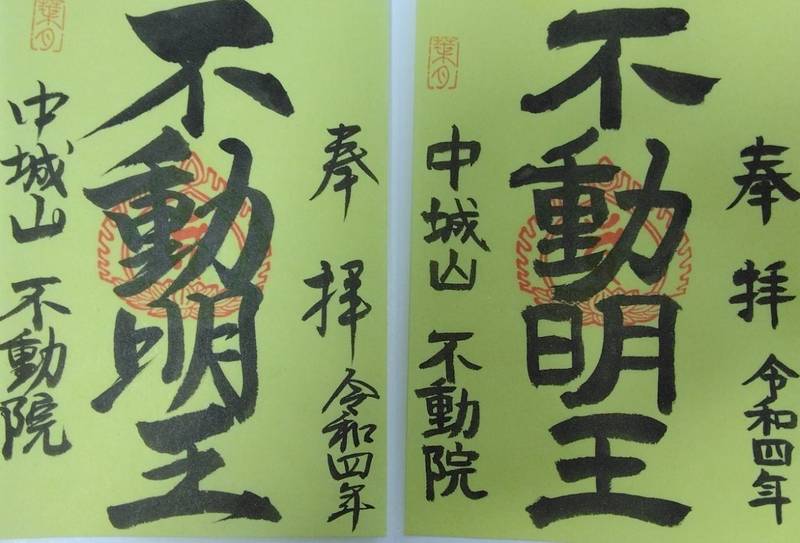 奉拝 令和四年
不動明王
中城山 不動院
葉月
奉拝 令和四年
不動明王
中城山 不動院
葉月